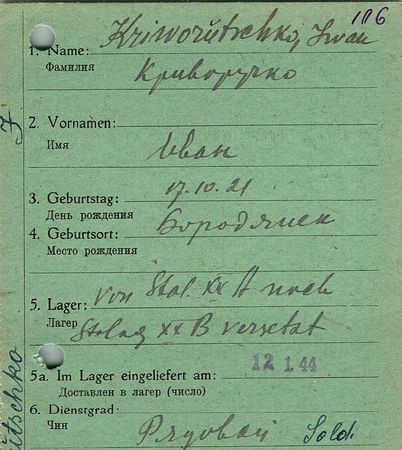 106
1. Name: Kriworutschko, Iwan
Фамилия
Криворучко
2. Vornamen:
Имя
Иван
3. Geburtstag: 17.10.21
День рождения
4. Geburtsort:
Место рождения
5. Lager: von Stal. XX A nach
Лагер Stalag XX B versetzt
5a. Im Lager eingeliefert am: 12 1.44
Доставлен в лагер (число)
6. Dienstgrad:
Чин
Рядовой Sold.
utschko